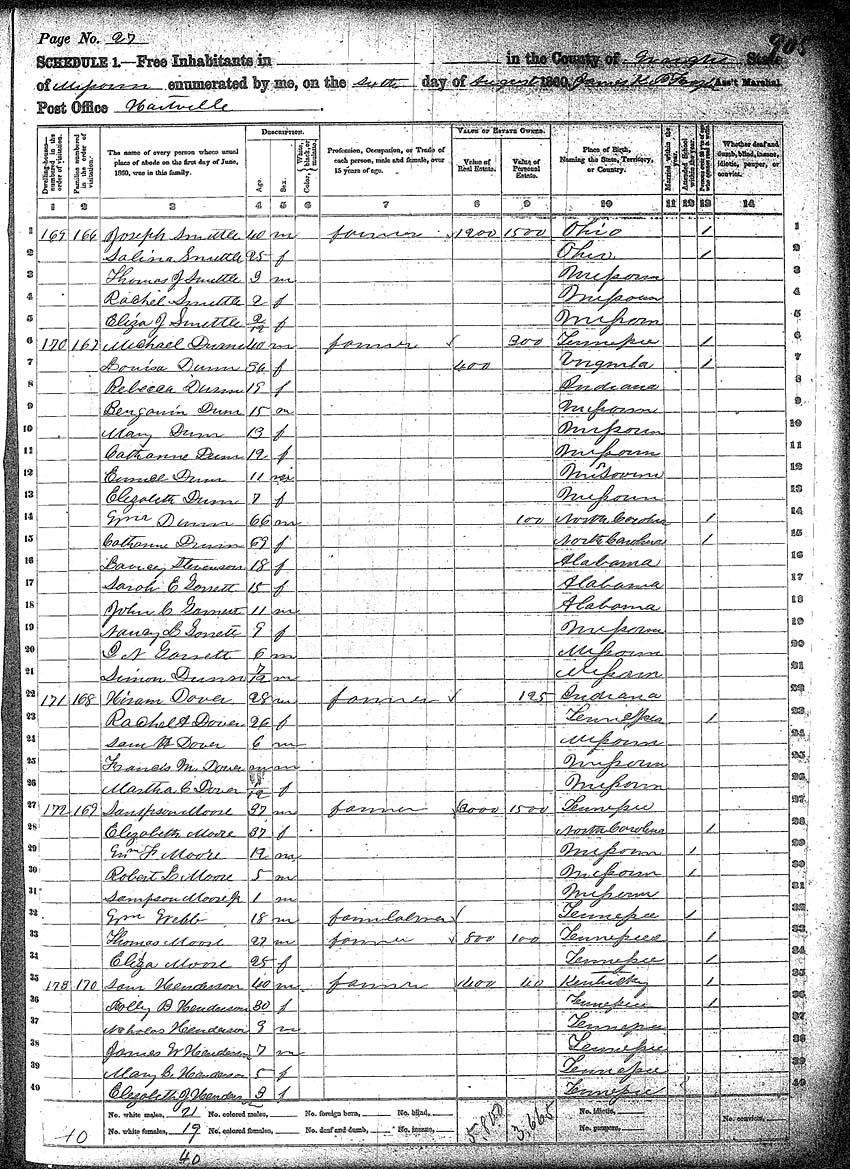 Page No. 27
905
SCHEDULE 1.—Free Inhabitants in in the County of State
of Missouri enumerated by me, on the sixth day of August 1860. James K. P. Ass't Marshal.
Post Office Hartville
Dwelling-houses—numbered in the order of visitation. Families numbered in the order of visitation. The name of every person whose usual place of abode on the first day of June, 1860, was in this family. DESCRIPTION. Age. Sex. Color, White, black, or mulatto. Profession, Occupation, or Trade of each person, male and female, over 15 years of age. VALUE OF ESTATE OWNED. Value of Real Estate. Value of Personal Estate. Place of Birth, Naming the State, Territory, or Country. Married within the year. Attended School within the year. Whether deaf and dumb, blind, insane, idiotic, pauper, or convict.
1 2 3 4 5 6 7 8 9 10 11 12 13 14
1 169 166 Joseph Smittle 40 m farmer 1200 1500 Ohio 1 1
2 Salina Smittle 25 f Ohio 1 2
3 Thomas J Smittle 3 m Missouri 3
4 Rachel Smittle 2 f Missouri 4
5 Eliza J Smittle 2/12 f Missouri 5
6 170 167 Michael Dunn 40 m farmer 300 Tennessee 1 6
7 Louisa Dunn 36 f 400 Virginia 1 7
8 Rebecca Dunn 19 f Indiana 8
9 Benjamin Dunn 15 m Missouri 9
10 Mary Dunn 13 f Missouri 10
11 Catharine Dunn 12 f Missouri 11
12 Dunn 11 Missouri 12
13 Elizabeth Dunn 7 f Missouri 13
14 Wm Dunn 66 m 100 North Carolina 1 14
15 Catharine Dunn 69 f North Carolina 1 15
16 Stevenson 18 f Alabama 16
17 Sarah E Garrett 15 f Alabama 17
18 John C Garrett 11 m Alabama 18
19 Nancy L Garrett 9 f Missouri 19
20 N Garrett 6 m Missouri 20
21 Simon Dunn 7/12 m Missouri 21
22 171 168 Hiram Dover 28 m farmer 125 Indiana 22
23 Rachel A Dover 26 f Tennessee 1 23
24 Sam H Dover 6 m Missouri 24
25 Francis M Dover m Missouri 25
26 Martha C Dover f Missouri 26
27 172 169 Sampson Moore 37 m farmer 3000 1500 Tennessee 27
28 Elizabeth Moore 37 f North Carolina 1 28
29 Wm F Moore 12 m Missouri 1 29
30 Robert L Moore 5 m Missouri 1 30
31 Sampson Moore Jr 1 m Missouri 31
32 Wm Webb 18 m farm laborer Tennessee 1 32
33 Thomas Moore 27 m farmer 800 100 Tennessee 1 33
34 Eliza Moore 25 f Tennessee 1 34
35 173 170 Sam Henderson 40 m farmer 400 40 Kentucky 1 35
36 B Henderson 30 f Tennessee 1 36
37 Nicholas Henderson 9 m Tennessee 37
38 James W Henderson 7 m Tennessee 38
39 Mary C Henderson 5 f Tennessee 39
40 Elizabeth J Henders 3 f Tennessee 40
No. white males, 21 No. colored males, No. foreign born, No. blind, 5,800 3,665 No. idiotic, No. convicts,
No. white females, 19 No. colored females, No. deaf and dumb, No. insane, No. paupers,
10
40